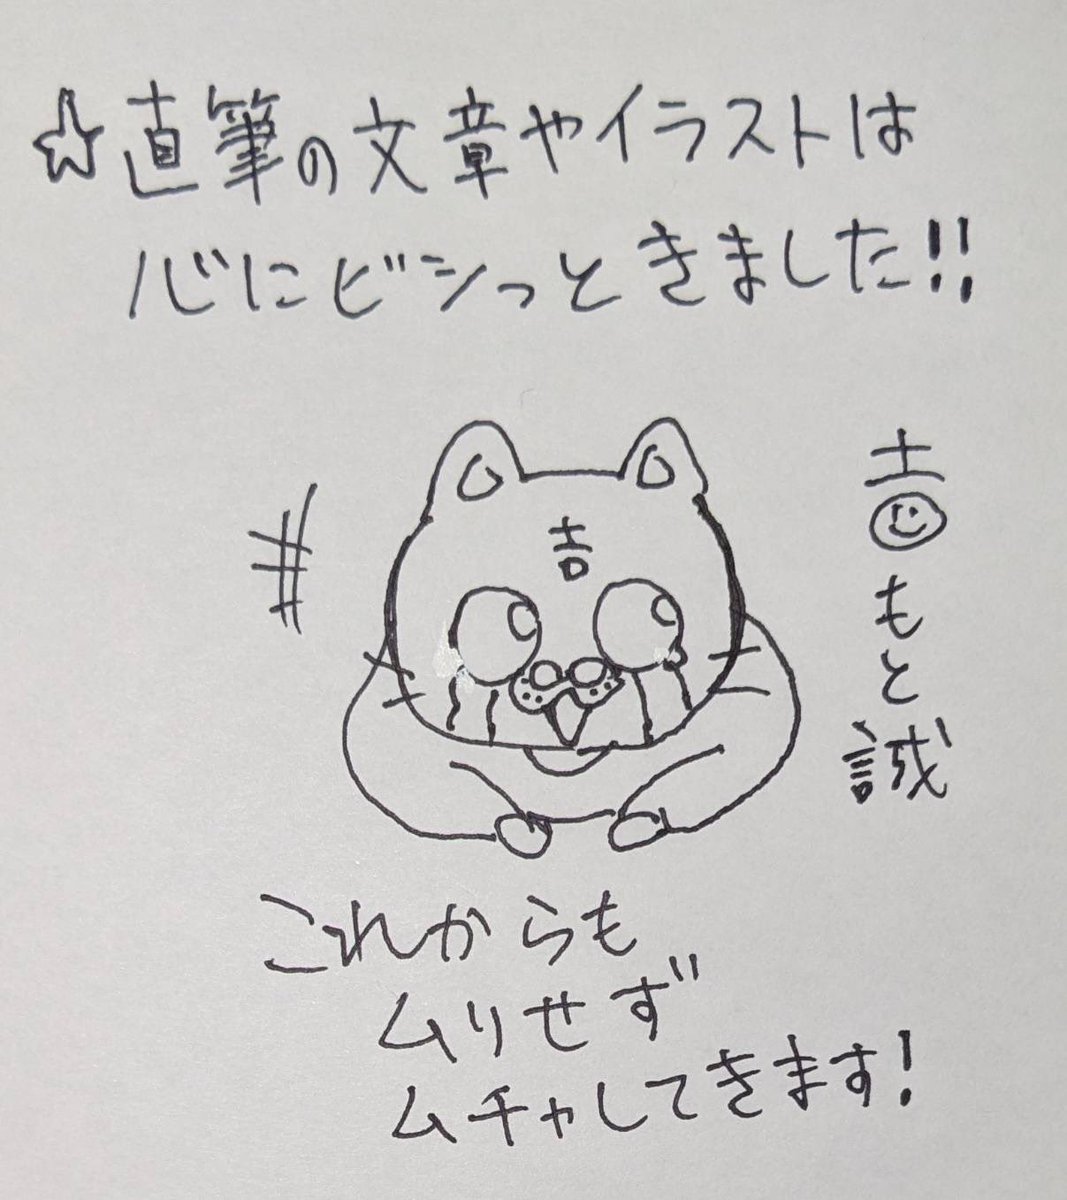 ☆直筆の文章やイラストは
心にビシっときました!!
吉
吉もと誠
これからも
ムリせず
ムチャしてきます!